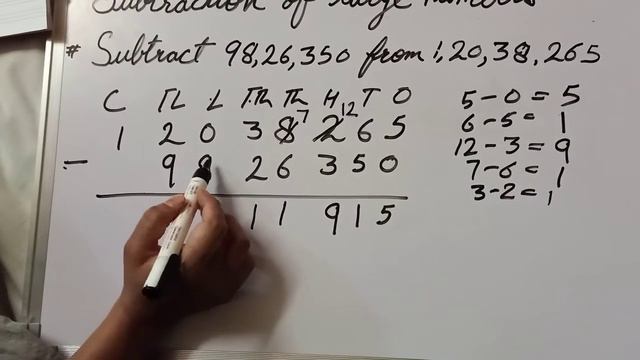 Subtraction of large numbers
# Subtract 98,26,350 from 1,20,38,265
C TL L T.Th Th H T O
1 2 0 3 8 7 2 12 6 5
- 9 26 350
11 915
5-0=5
6-5=1
12-3=9
7-6=1
3-2=1